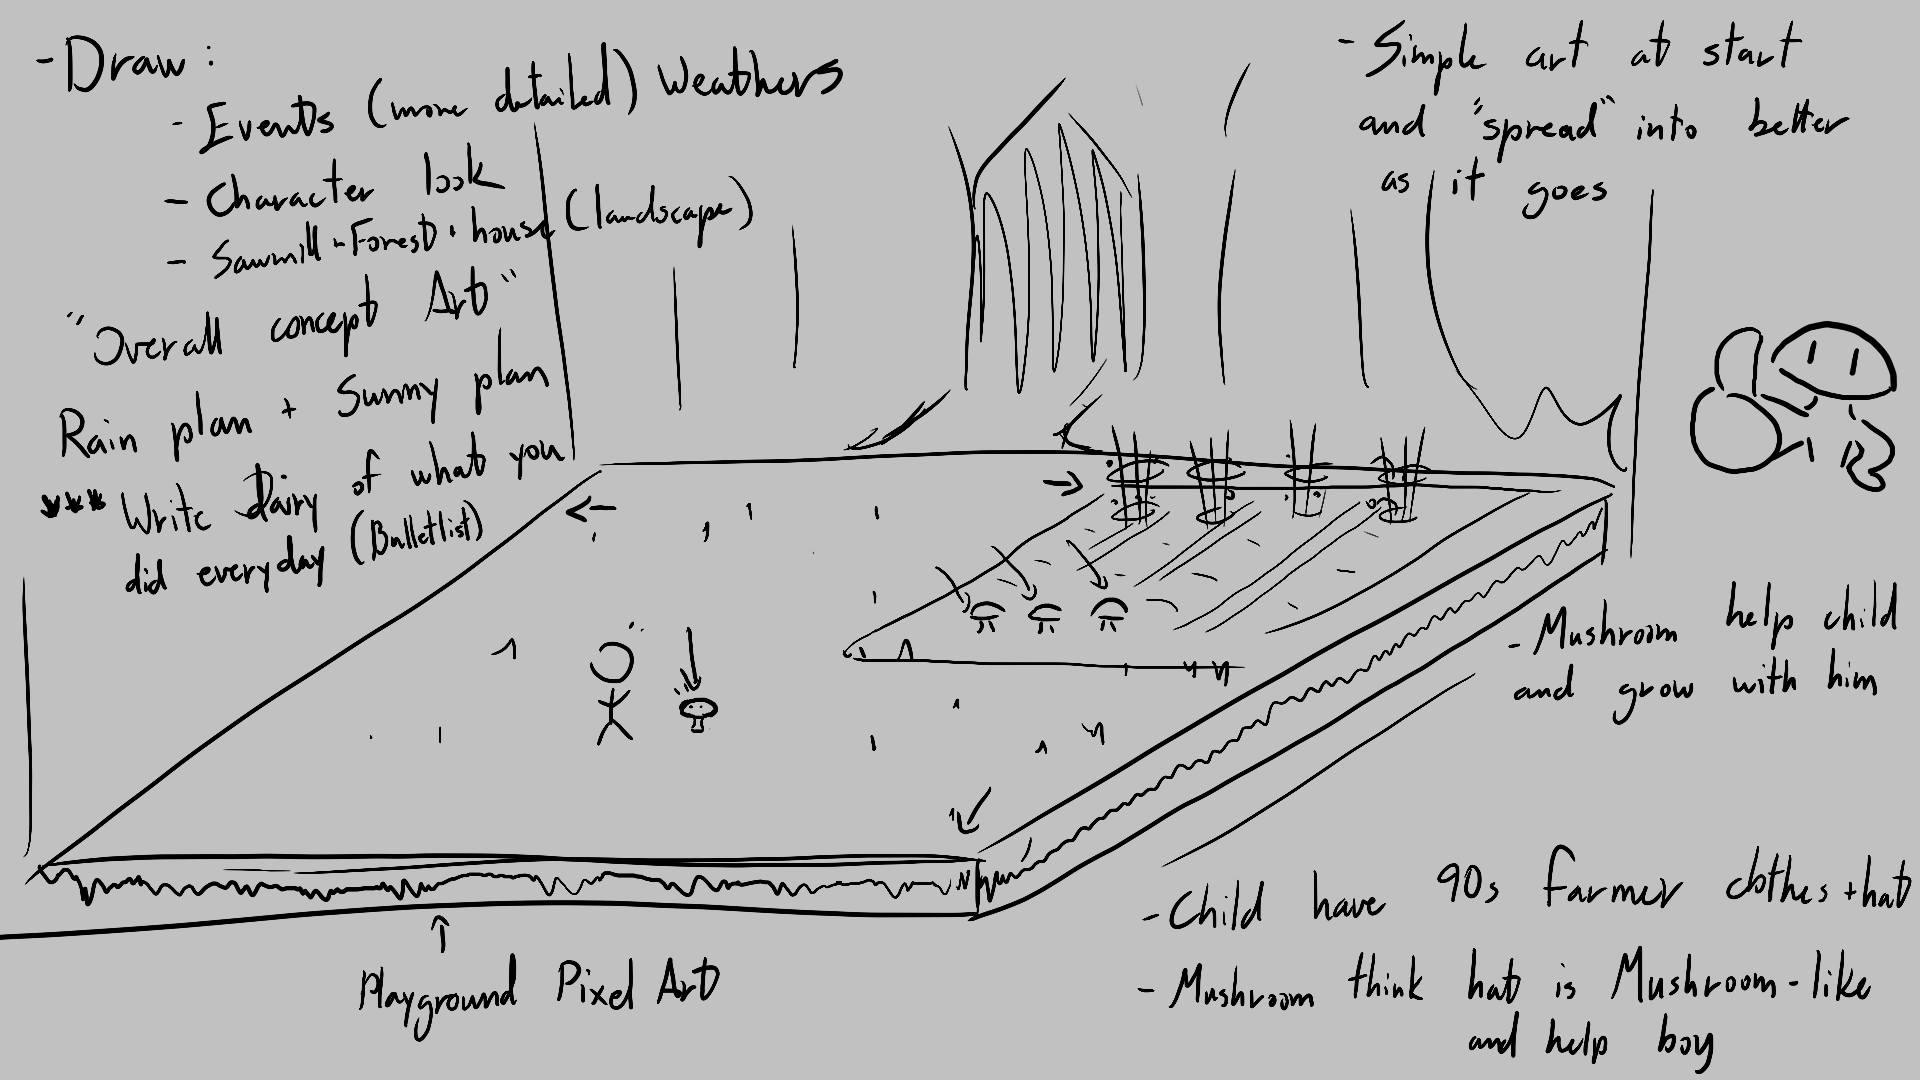 - Draw :
- Events (more detailed) Weathers
- Character look
- Sawmill - Forest + house (landscape)
"Overall concept Art"
Rain plan + Sunny plan
*** Write Dairy of what you
did everyday (Bulletlist)
- Simple art at start
and "spread" into better
as it goes
- Mushroom help child
and grow with him
- Child have 90s farmer clothes + hat
- Mushroom think hat is Mushroom-like
and help boy
Playground Pixel Art